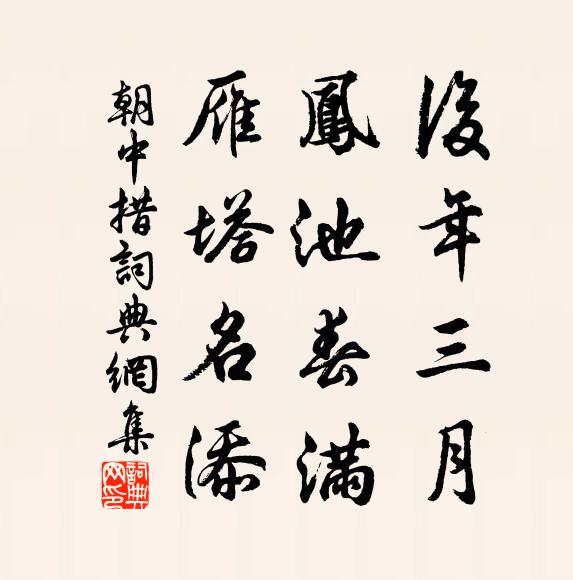 後年三月
鳳池春滿
雁塔名添
朝中措詞典網集
詞典
网印